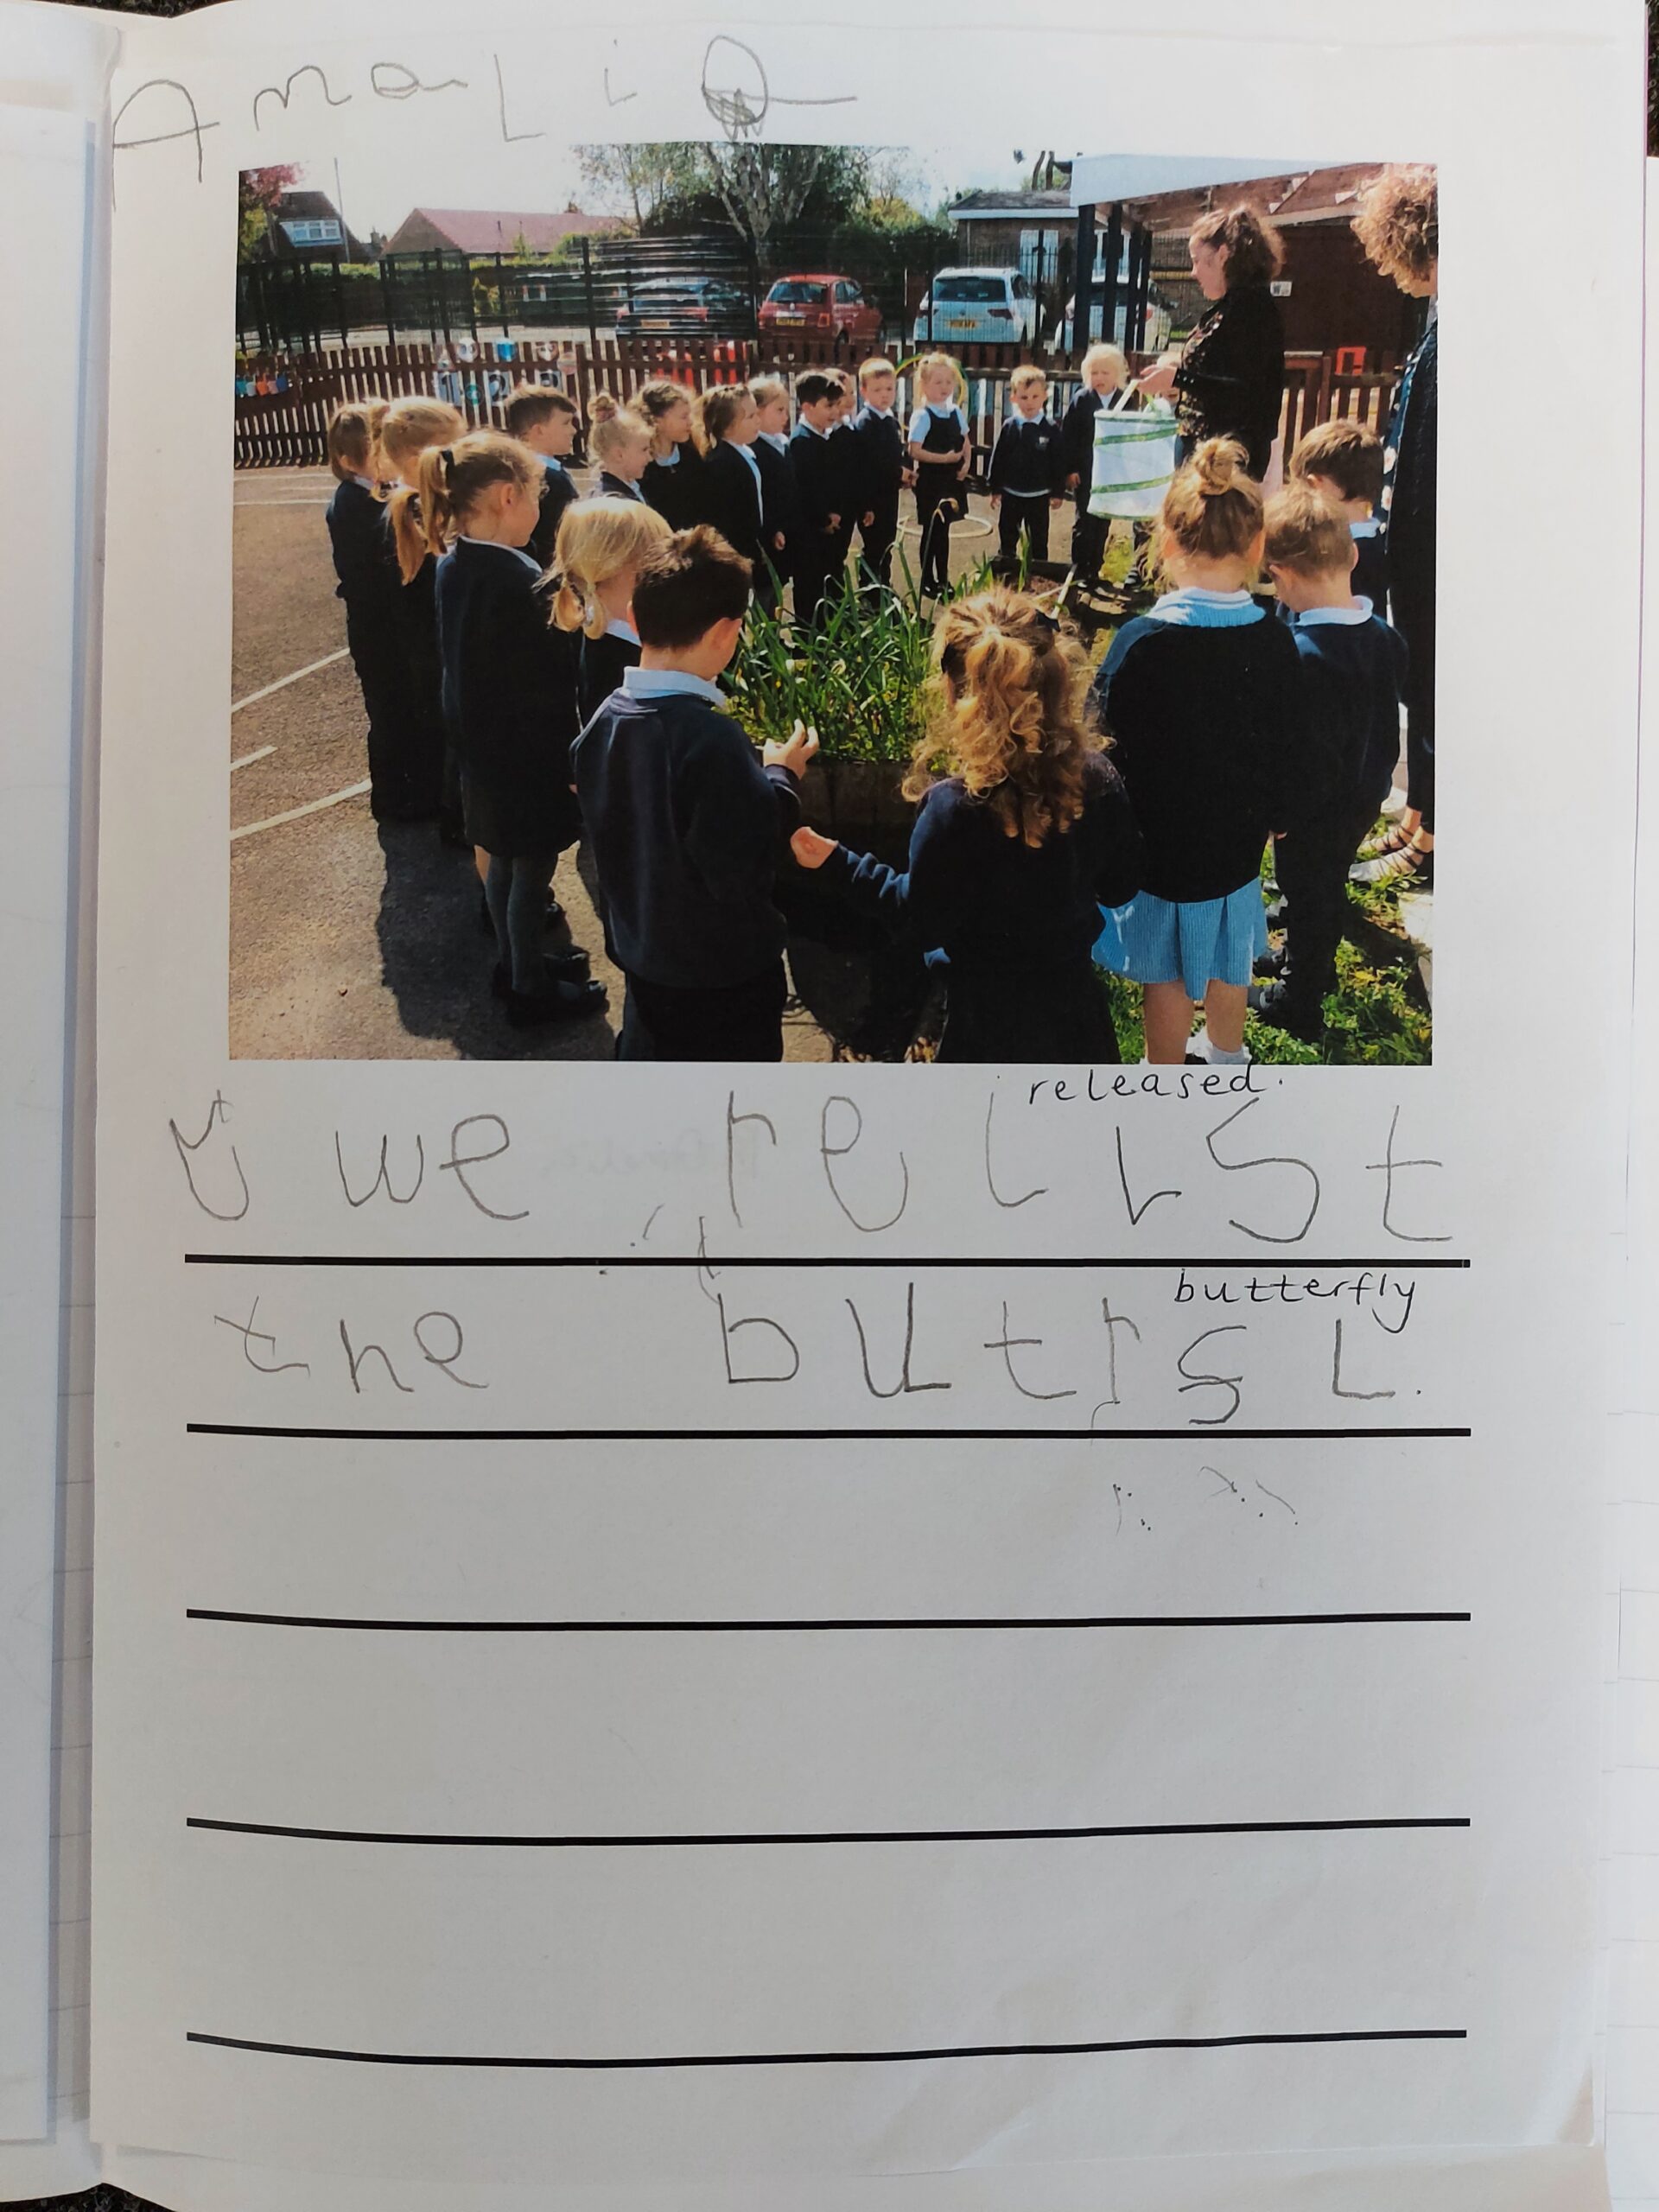 Amalia
released.
we relist
butterfly
the butrsL.